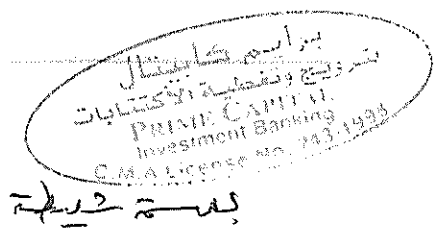 برايم كابيتال
ترويج وتغطية الاكتتابات
PRIME CAPITAL
Investment Banking
C.M.A License No. 243.1995